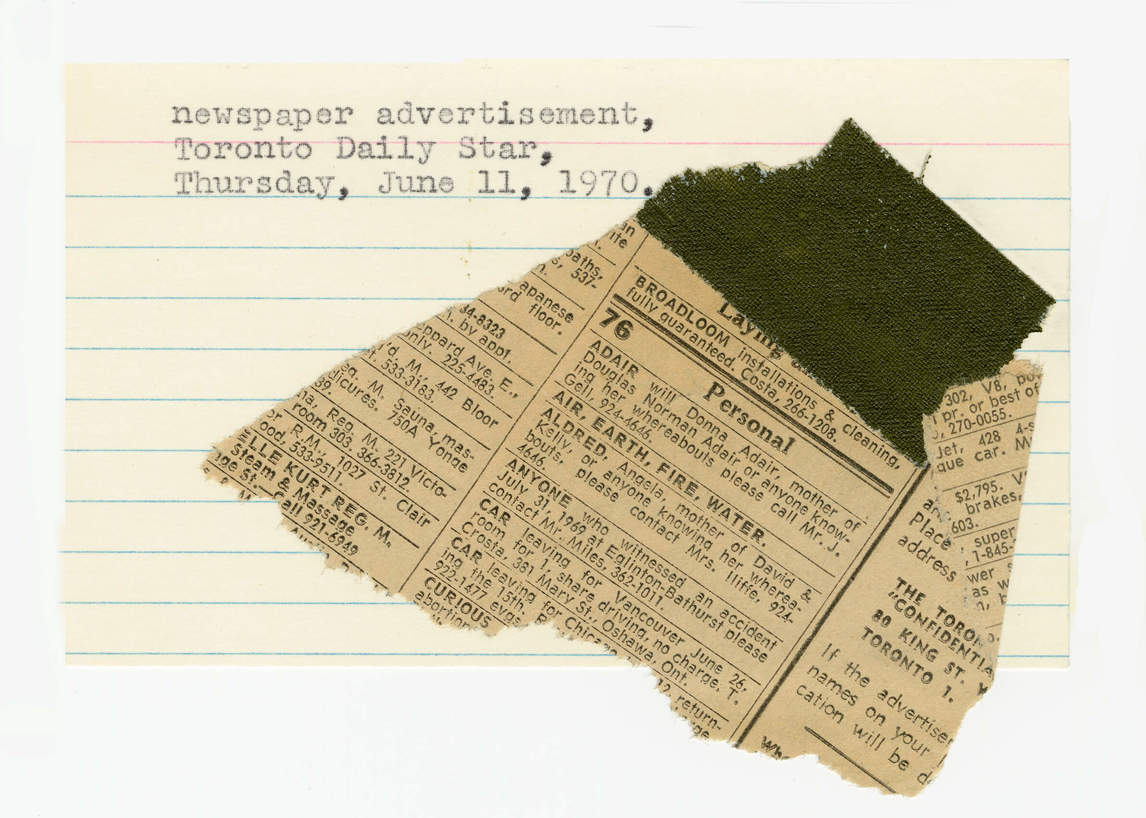 newspaper advertisement,
Toronto Daily Star,
Thursday, June 11, 1970.
apanese
rd floor.
4-8323
by appt.
ppard Ave. E.,
only. 225-4483.
M., 442 Bloor
533-3183.
M. Sauna, mas-
icures. 750A Yonge
Reg. M. 221 Victo-
room 303. 366-3812.
R.M. 1027 St. Clair
533-9511.
ELLE KURT REG. M.
Steam & Massage
St. Call 921-6949
Laying
BROADLOOM installations & cleaning,
fully guaranteed. Costa, 266-1208.
76 Personal
ADAIR will Donna Adair, mother of
Douglas Norman Adair, or anyone know-
ing her whereabouts please call Mr. J.
Gell, 924-4646.
AIR, EARTH, FIRE, WATER.
ALDRED, Angela, mother of David &
Kelly, or anyone knowing her wherea-
bouts, please contact Mrs. Iliffe. 924-
4646.
ANYONE who witnessed an accident
July 31, 1969 at Eglinton-Bathurst please
contact Mr. Miles. 362-1011.
CAR leaving for Vancouver June 26,
room for 1, share driving, no charge. T.
Crosta. 381 Mary St., Oshawa, Ont.
CAR leaving for
ing the 15th.
12, return-
922-1477 evgs.
CURIOUS
302, V8,
pr. or best of
270-0055.
Jet, 428
que car.
$2,795.
brakes,
603.
super
1-845-
as
Place
address
THE TORON
"CONFIDENTIA
80 KING ST. W
TORONTO 1.
If the advertiser
names on your
cation will be